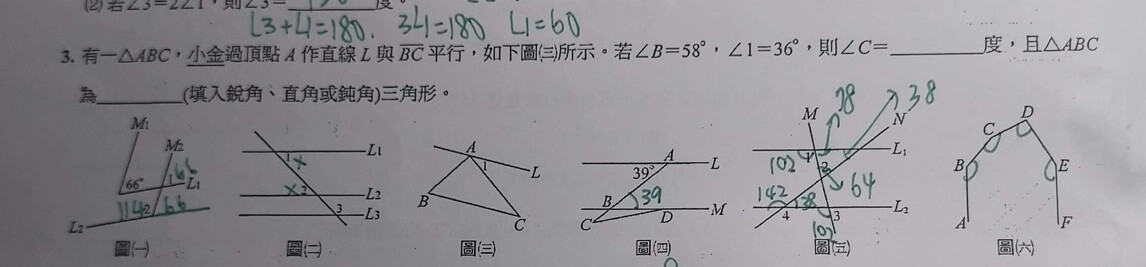 (2) 若∠3=2∠1,則∠3= 度。
∠3+∠1=180. 3∠1=180 ∠1=60
3. 有一△ABC,小金過頂點 A 作直線 L 與 BC 平行,如下圖㈢所示。若∠B=58°,∠1=36°,則∠C=________度,且△ABC
為________(填入銳角、直角或鈍角)三角形。
M1 M2 66° 1 66 L1 114 2 66 L2
1 x L1 x 2 L2 3 L3
A 1 L B C
A L 39° B 39 C D M
M 78 38 N 102 1 L1 2 64 142 38 4 3 L2
D C B E A F
圖㈠ 圖㈡ 圖㈢ 圖㈣ 圖㈤ 圖㈥